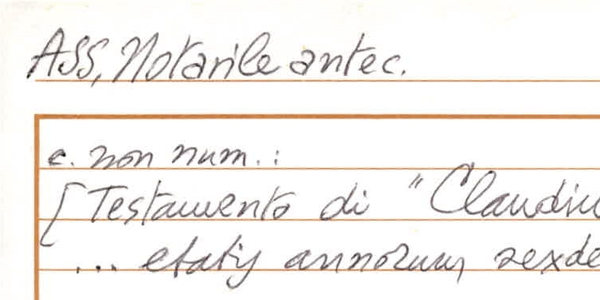 ASS, Notarile antec.
c. non num.:
[Testamento di "Claudiu
... etatis annorum sexde